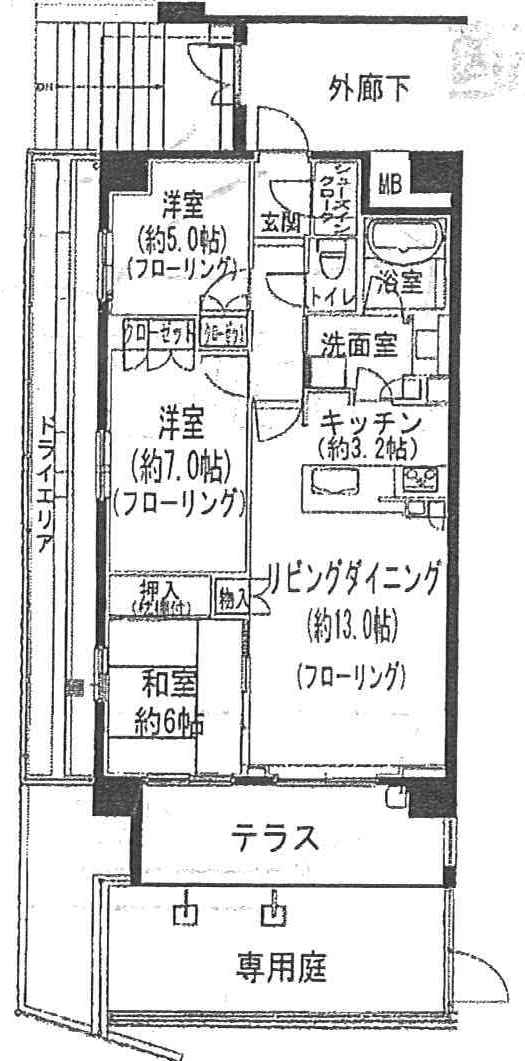 外廊下
DN
MB
洋室
(約5.0帖)
(フローリング)
玄関
シューズイン
クローク
トイレ
浴室
クローゼット
クローゼット
洗面室
洋室
(約7.0帖)
(フローリング)
キッチン
(約3.2帖)
ドライエリア
押入
(枕棚付)
物入
リビングダイニング
(約13.0帖)
(フローリング)
和室
約6帖
テラス
専用庭